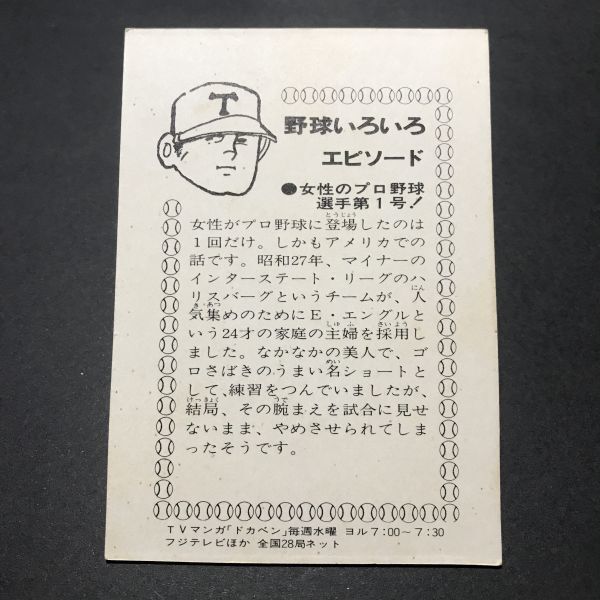 T
野球いろいろ
エピソード
●女性のプロ野球
選手第1号!
女性がプロ野球に登場したのは
1回だけ。しかもアメリカでの
話です。昭和27年、マイナーの
インターステート・リーグのハ
リスバーグというチームが、人
気集めのためにE・エングルと
いう24才の家庭の主婦を採用し
ました。なかなかの美人で、ゴ
ロさばきのうまい名ショートと
して、練習をつんでいましたが、
結局、その腕まえを試合に見せ
ないまま、やめさせられてしま
ったそうです。
TVマンガ「ドカベン」毎週水曜 ヨル7:00～7:30
フジテレビほか 全国28局ネット